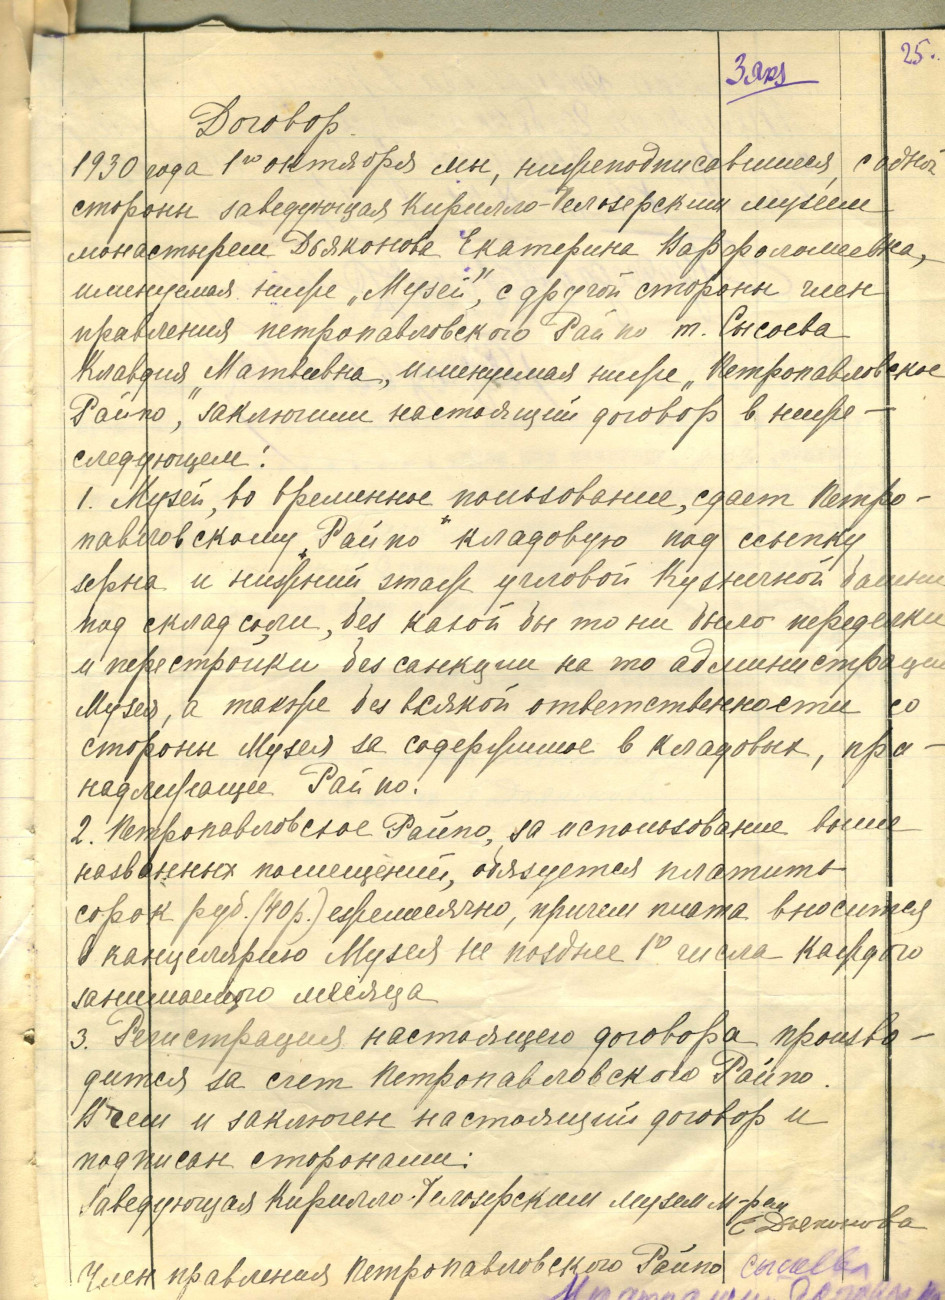 25.
3 экз
Договор.
1930 года 1го октября мы, нижеподписавшиеся, с одной
стороны заведующая Кирилло-Белозерским музеем
монастырем Дьяконова Екатерина Варфоломеевна,
именуемая ниже „Музей", с другой стороны член
правления петропавловского Райпо т. Сысоева
Клавдия Матвеевна, именуемая ниже „Петропавловское
Райпо", заключили настоящий договор в ниже-
следующем:
1. Музей, во временное пользование, сдает Петро-
павловскому „Райпо" кладовую под ссыпку
зерна и нижний этаж угловой Кузнечной башни
под склад соли, без какой бы то ни было переделки
и перестройки без санкции на то администрации
Музея, а также без всякой ответственности со
стороны Музея за содержимое в кладовых, при-
надлежащее Райпо.
2. Петропавловское Райпо, за использование выше
названных помещений, обязуется платить
сорок руб. (40 р.) ежемесячно, причем плата вносится
в канцелярию Музея не позднее 1го числа каждого
занимаемого месяца
3. Регистрация настоящего договора произво-
дится за счет Петропавловского Райпо.
В чем и заключен настоящий договор и
подписан сторонами:
Заведующая Кирилло-Белозерским музем м-рем
Е Дьяконова
Член правления Петропавловского Райпо Сысоева